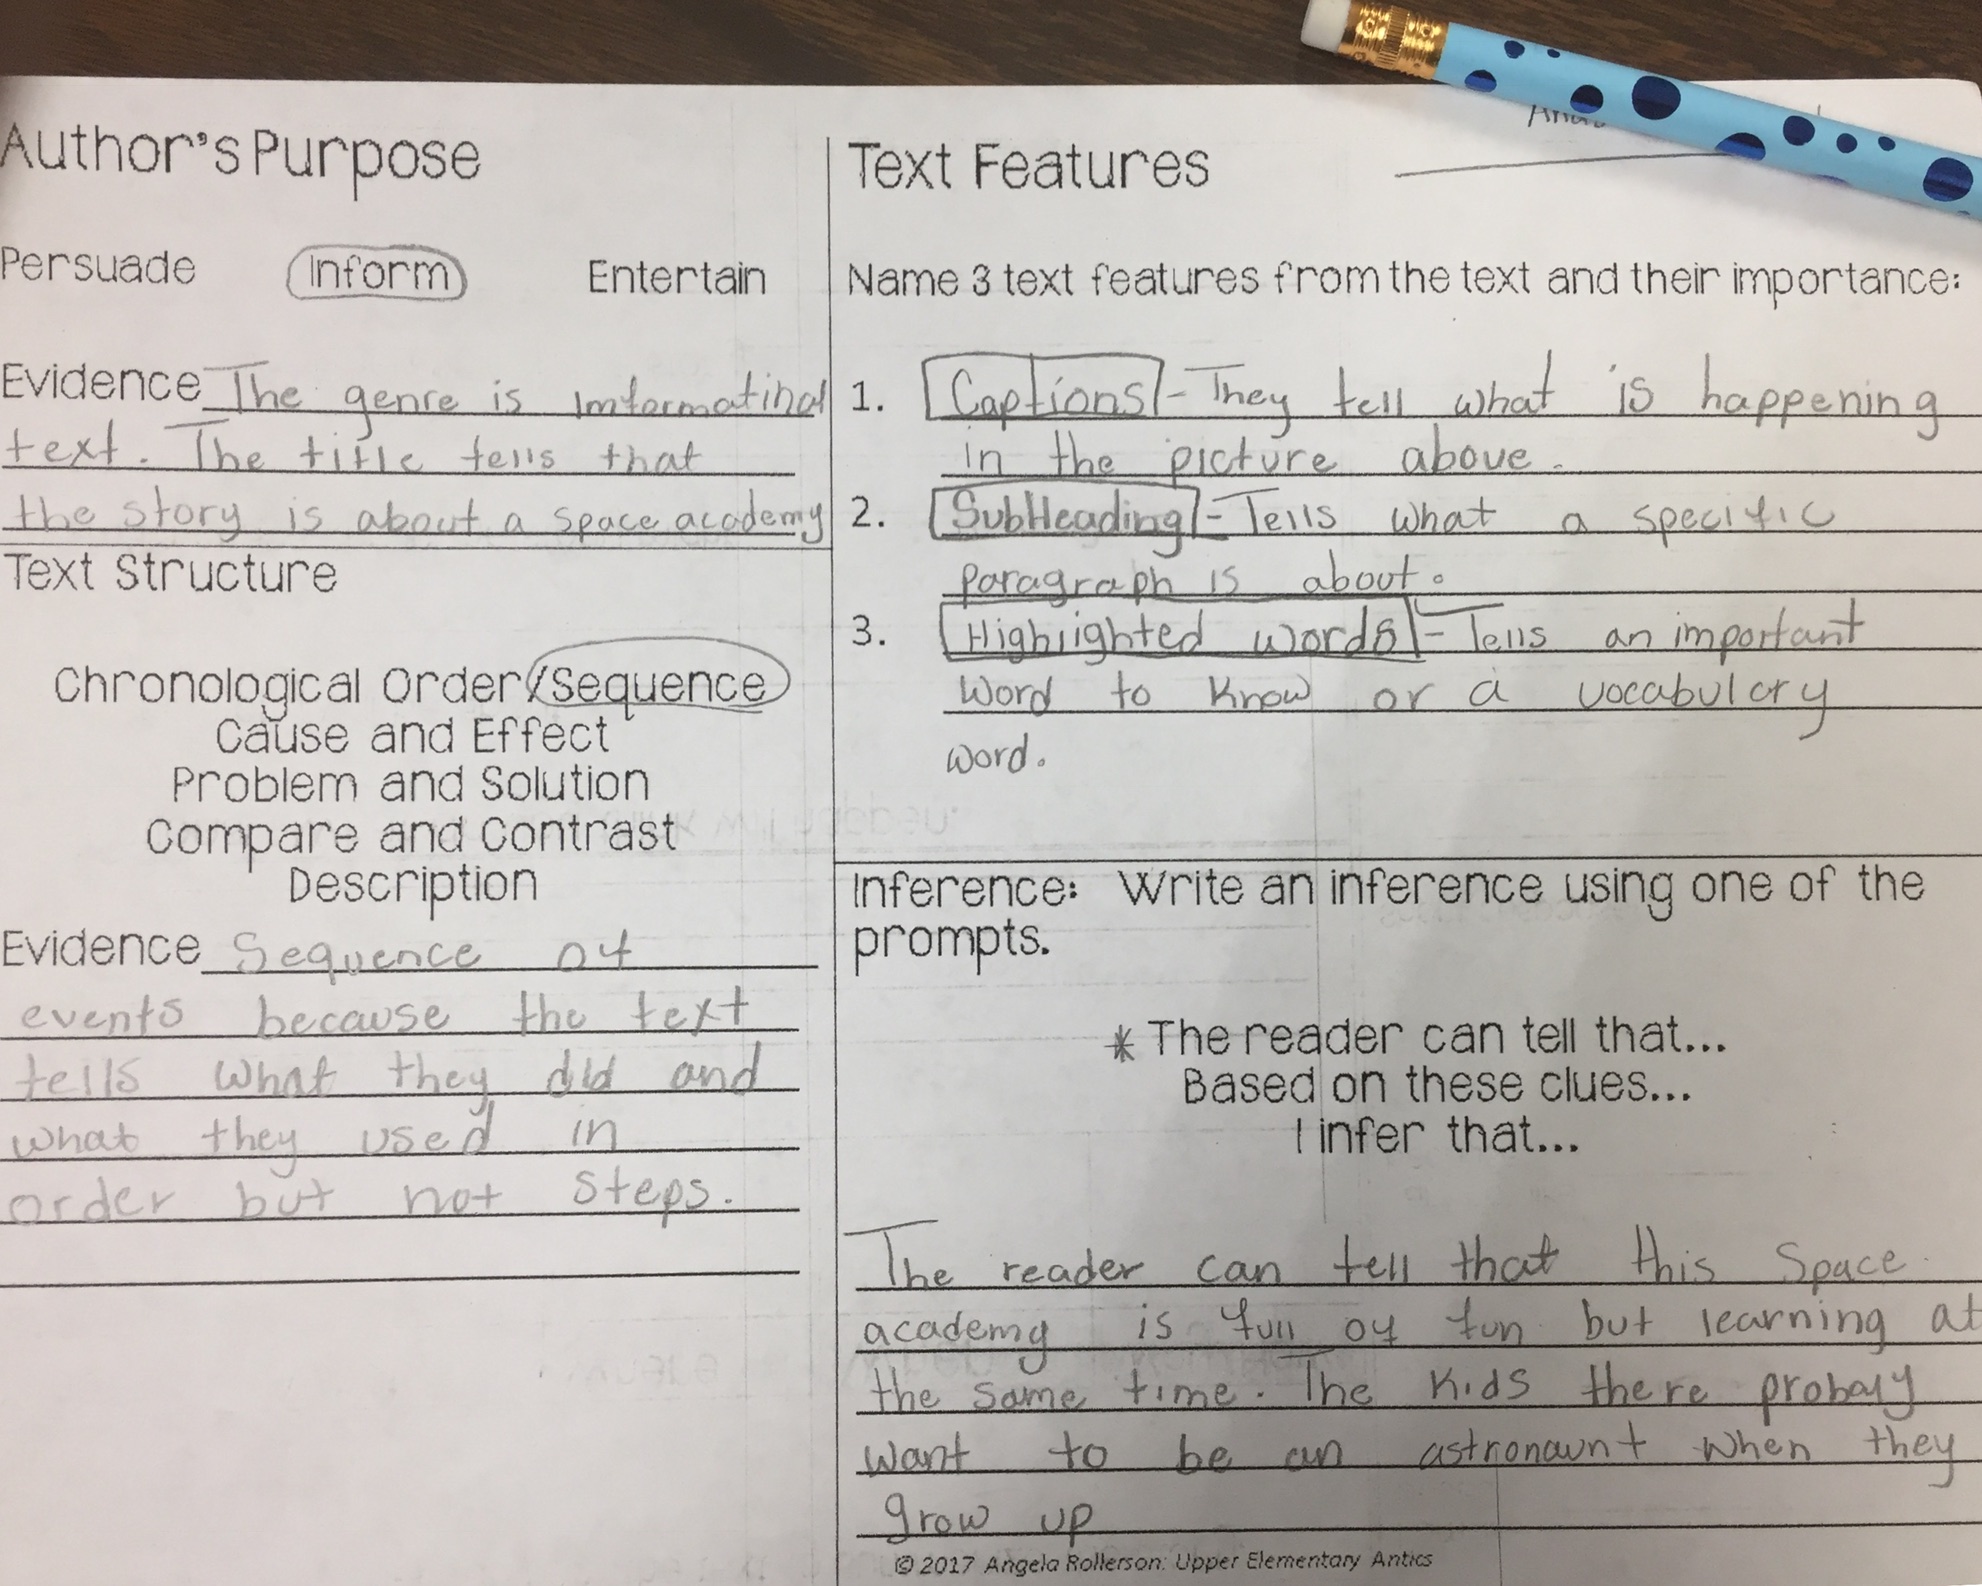 Author's Purpose
Persuade Inform Entertain
Evidence The genre is Imformatinal
text. The title tells that
the story is about a space academy
Text Structure
Chronological Order/Sequence
Cause and Effect
Problem and Solution
Compare and Contrast
Description
Evidence Sequence of
events because the text
tells what they did and
what they used in
order but not steps.
Text Features
Name 3 text features from the text and their importance:
1. Captions - They tell what is happening
in the picture above.
2. SubHeading - Tells what a specific
paragraph is about.
3. Highlighted words - Tells an important
word to know or a vocabulary
word.
Inference: Write an inference using one of the
prompts.
* The reader can tell that...
Based on these clues...
I infer that...
The reader can tell that this Space
academy is full of fun but learning at
the same time. The kids there probaly
want to be an astronaunt when they
grow up
© 2017 Angela Rollerson: Upper Elementary Antics